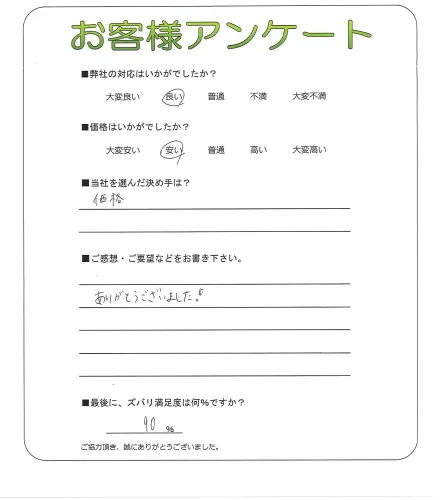 お客様アンケート
■弊社の対応はいかがでしたか？
大変良い 良い 普通 不満 大変不満
■価格はいかがでしたか？
大変安い 安い 普通 高い 大変高い
■当社を選んだ決め手は？
価格
■ご感想・ご要望などをお書き下さい。
ありがとうございました！
■最後に、ズバリ満足度は何％ですか？
90 ％
ご協力頂き、誠にありがとうございました。